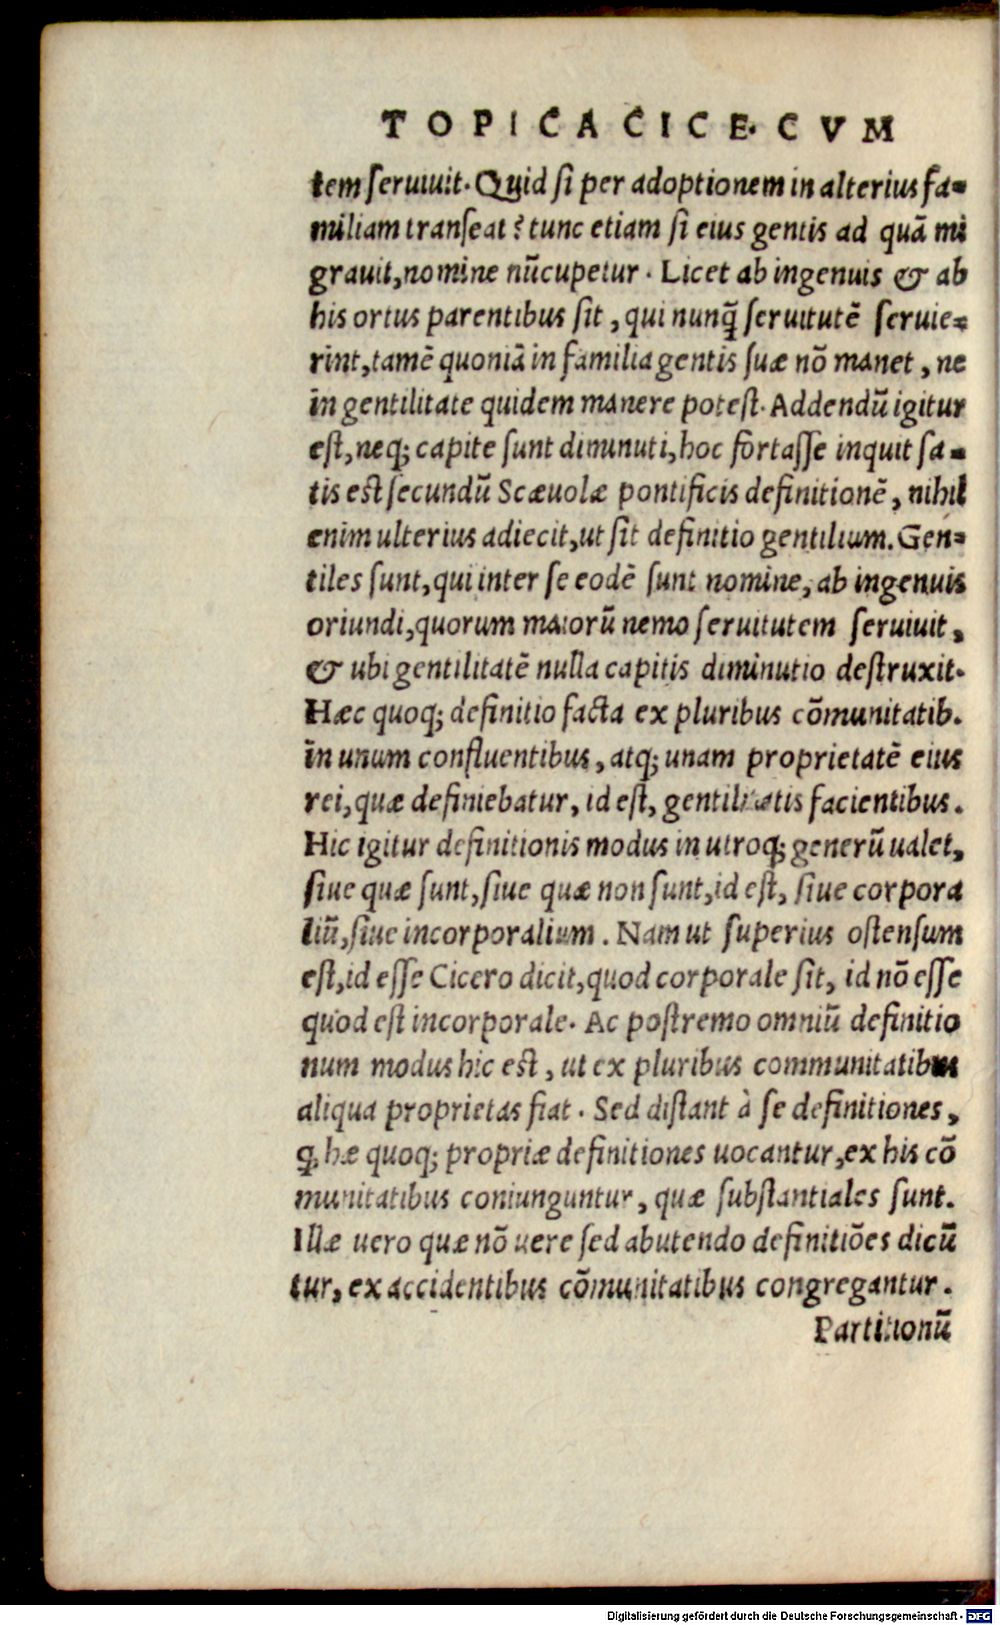 TOPICA CICE. CVM
tem seruiuit. Quid si per adoptionem in alterius fa-
miliam transeat? tunc etiam si eius gentis ad quã mi
grauit, nomine nũcupetur. Licet ab ingenuis & ab
his ortus parentibus sit, qui nunq̃ seruitutẽ seruie-
rint, tamẽ quoniã in familia gentis suæ nõ manet, ne
in gentilitate quidem manere potest. Addendũ igitur
est, neq; capite sunt diminuti, hoc fortasse inquit sa-
tis est secundũ Scæuolæ pontificis definitionẽ, nihil
enim ulterius adiecit, ut sit definitio gentilium. Gen-
tiles sunt, qui inter se eodẽ sunt nomine, ab ingenuis
oriundi, quorum maiorũ nemo seruitutem seruiuit,
& ubi gentilitatẽ nulla capitis diminutio destruxit.
Hæc quoq; definitio facta ex pluribus cõmunitatib.
in unum confluentibus, atq; unam proprietatẽ eius
rei, quæ definiebatur, id est, gentilitatis facientibus.
Hic igitur definitionis modus in utroq; generũ ualet,
siue quæ sunt, siue quæ non sunt, id est, siue corpora
liũ, siue incorporalium. Nam ut superius ostensum
est, id esse Cicero dicit, quod corporale sit, id nõ esse
quod est incorporale. Ac postremo omniũ definitio
num modus hic est, ut ex pluribus communitatibus
aliqua proprietas fiat. Sed distant à se definitiones,
ꝙ hæ quoq; propriæ definitiones uocantur, ex his cõ
munitatibus coniunguntur, quæ substantiales sunt.
Illæ uero quæ nõ uere sed abutendo definitiões dicũ
tur, ex accidentibus cõmunitatibus congregantur.
Partitionũ
Digitalisierung gefördert durch die Deutsche Forschungsgemeinschaft - DFG